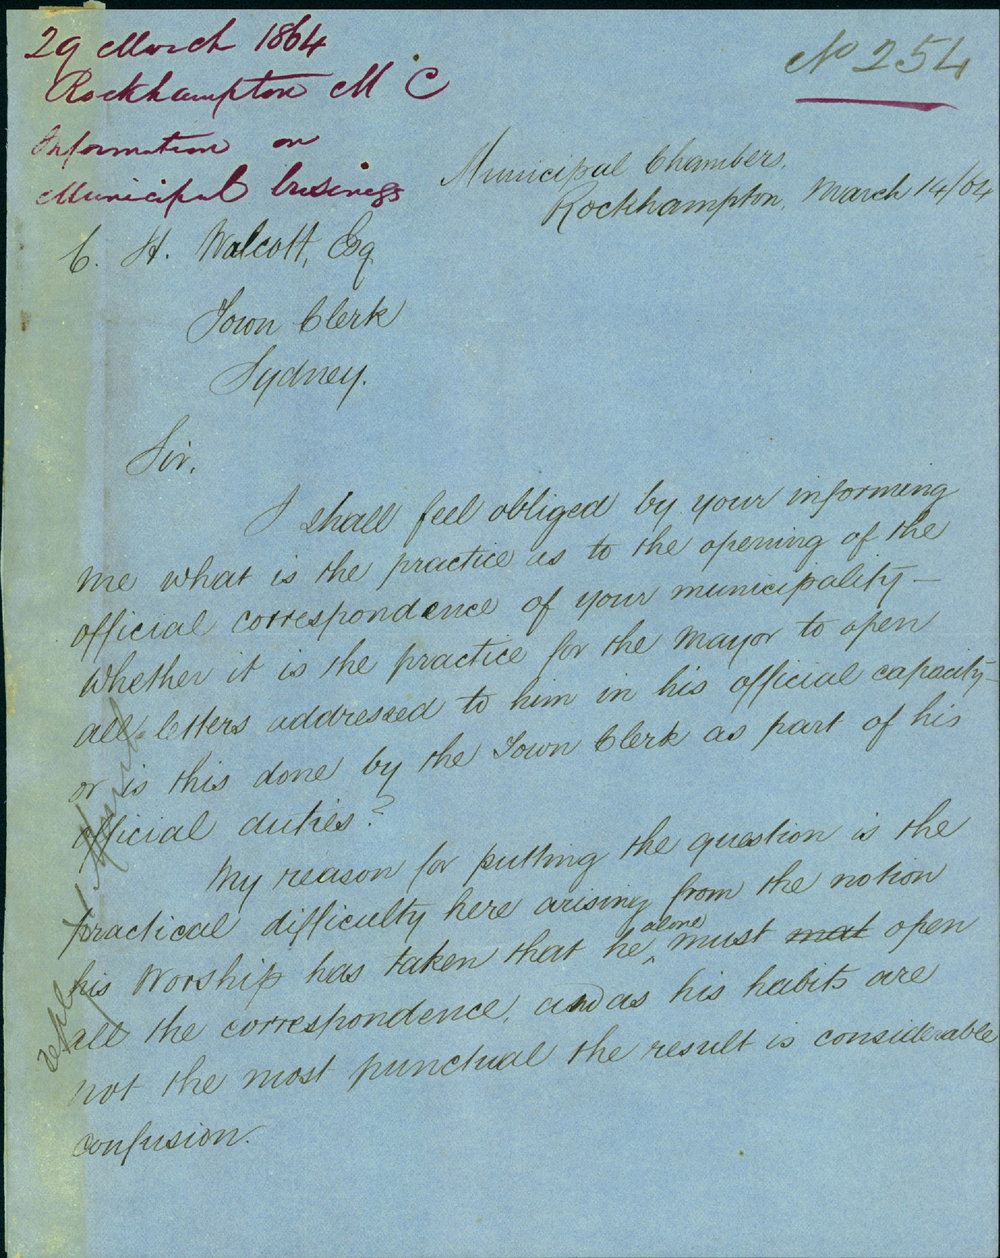 29 March 1864
Rockhampton M C
Information on
Municipal business
No 254
Municipal Chambers,
Rockhampton, March 14/64
C. H. Walcott, Esq
Town Clerk
Sydney.
Sir,
I shall feel obliged by your informing
me what is the practice as to the opening of the
official correspondence of your municipality—
Whether it is the practice for the Mayor to open
all letters addressed to him in his official capacity—
or is this done by the Town Clerk as part of his
official duties?
My reason for putting the question is the
practical difficulty here arising from the notion
his Worship has taken that he alone must not open
all the correspondence, and as his habits are
not the most punctual the result is considerable
confusion.